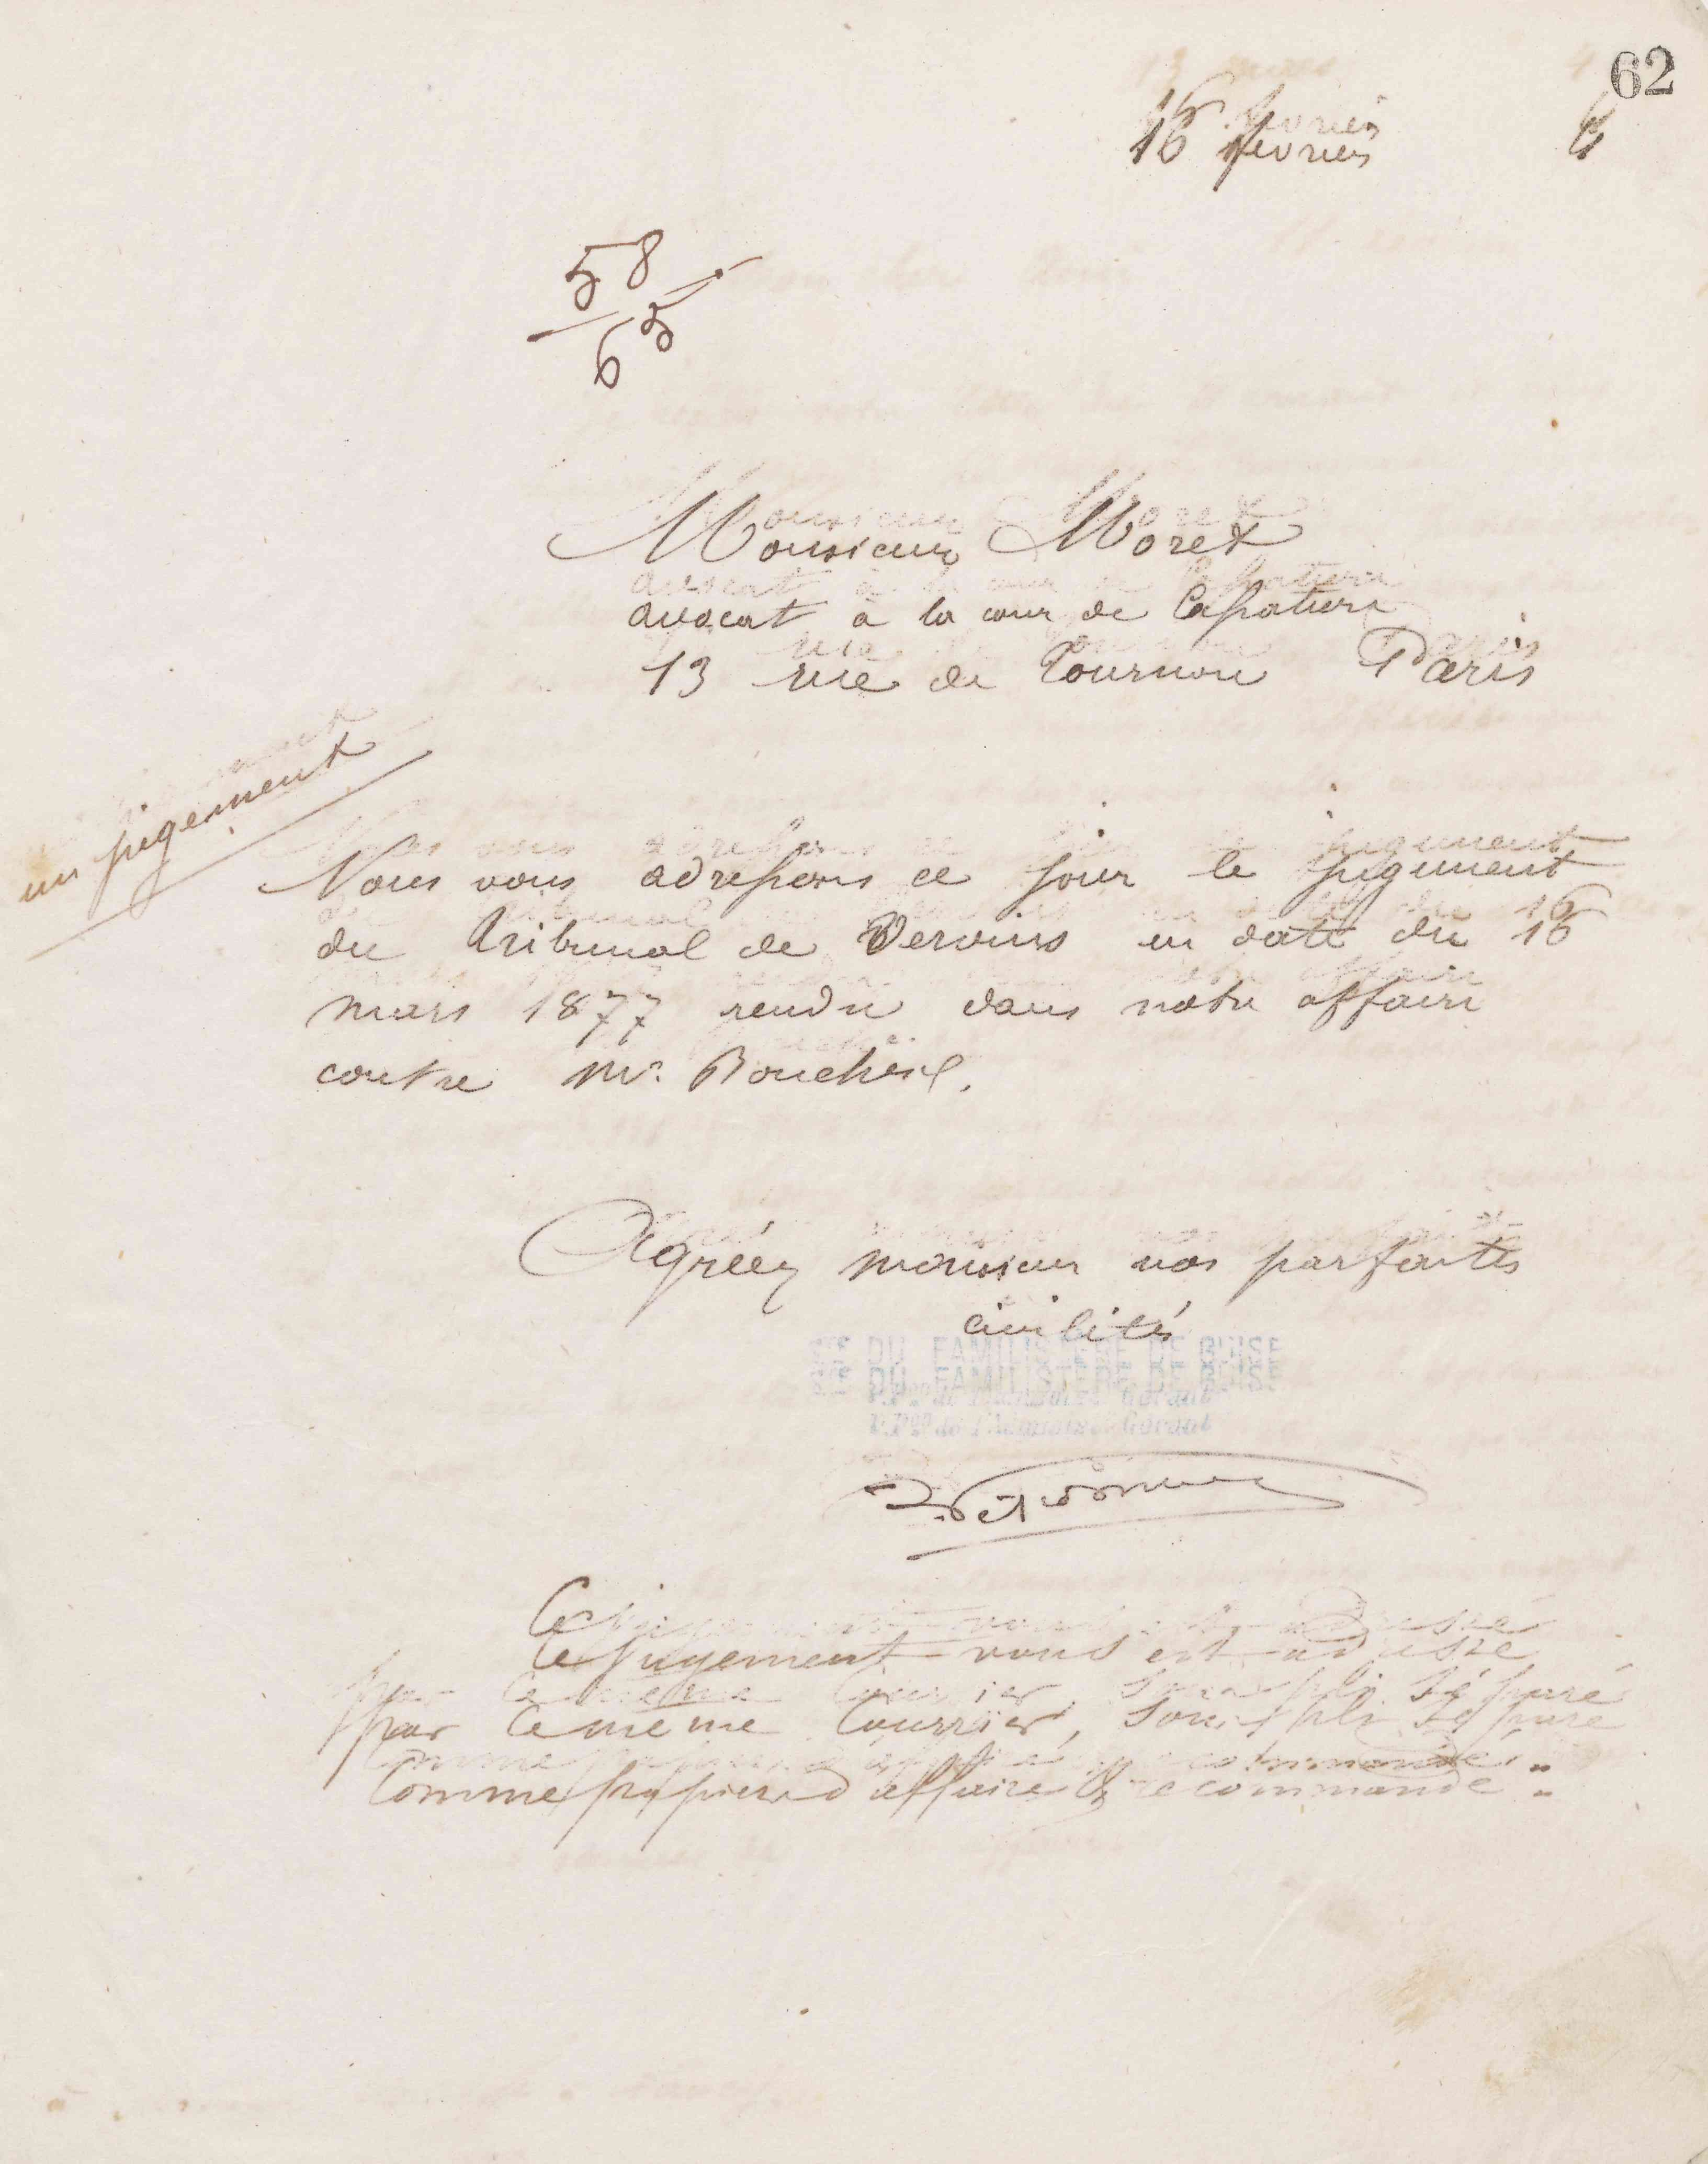 62
16 février
58
65
Monsieur Moret
avocat à la cour de Cassation
13 rue de Tournon Paris
un jugement
Nous vous adressons ce jour le jugement
du Tribunal de Vervins en date du 16
mars 1877 rendu dans notre affaire
contre Mr.
Agréez monsieur nos parfaites
civilités
Sté DU FAMILISTÈRE DE GUISE
P.Pon de l'Administ. Gérant
Ce jugement vous est adressé
par le même courrier, sous pli séparé
comme papier d'affaire & recommandé.